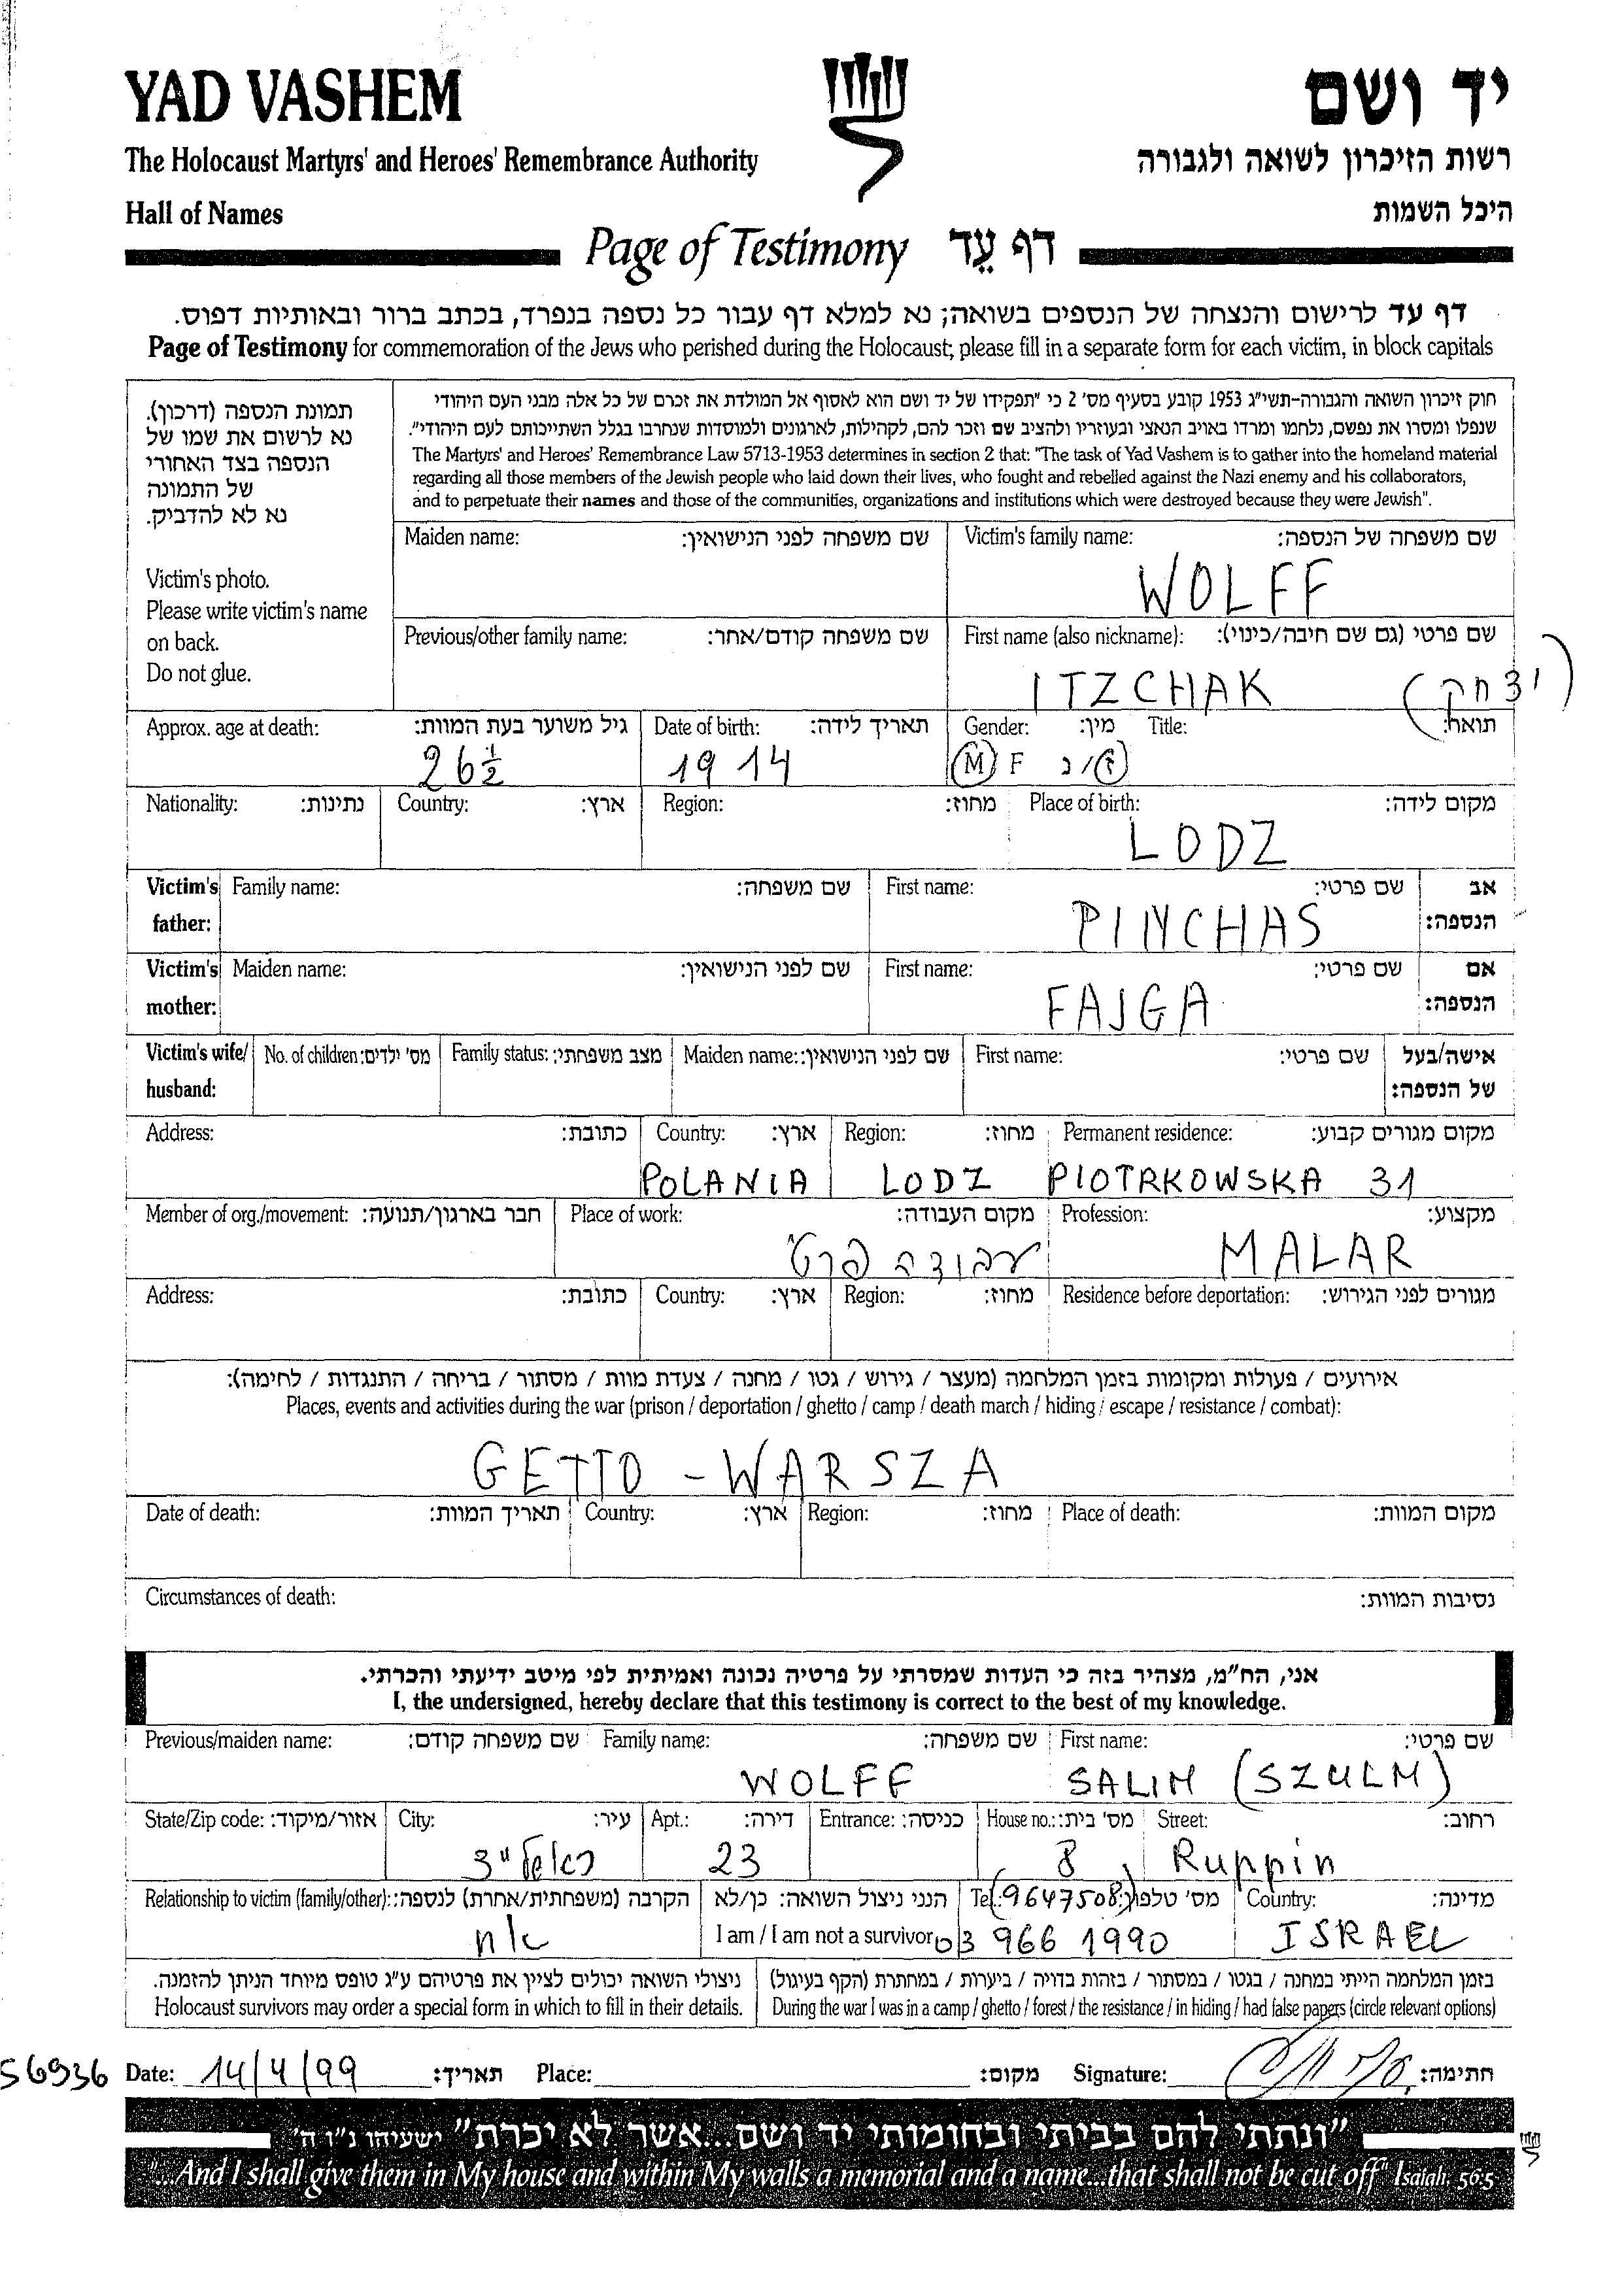 YAD VASHEM
יד ושם
The Holocaust Martyrs' and Heroes' Remembrance Authority
רשות הזיכרון לשואה ולגבורה
Hall of Names
היכל השמות
Page of Testimony דף עֵד
דף עד לרישום והנצחה של הנספים בשואה; נא למלא דף עבור כל נספה בנפרד, בכתב ברור ובאותיות דפוס.
Page of Testimony for commemoration of the Jews who perished during the Holocaust; please fill in a separate form for each victim, in block capitals
תמונת הנספה (דרכון).
נא לרשום את שמו של
הנספה בצד האחורי
של התמונה
נא לא להדביק.
Victim's photo.
Please write victim's name
on back.
Do not glue.
חוק זיכרון השואה והגבורה-תשי"ג 1953 קובע בסעיף מס' 2 כי "תפקידו של יד ושם הוא לאסוף אל המולדת את זכרם של כל אלה מבני העם היהודי
שנפלו ומסרו את נפשם, נלחמו ומרדו באויב הנאצי ובעוזריו ולהציב שם וזכר להם, לקהילות, לארגונים ולמוסדות שנחרבו בגלל השתייכותם לעם היהודי".
The Martyrs' and Heroes' Remembrance Law 5713-1953 determines in section 2 that: "The task of Yad Vashem is to gather into the homeland material
regarding all those members of the Jewish people who laid down their lives, who fought and rebelled against the Nazi enemy and his collaborators,
and to perpetuate their names and those of the communities, organizations and institutions which were destroyed because they were Jewish".
Maiden name: שם משפחה לפני הנישואין: Victim's family name: שם משפחה של הנספה:
WOLFF
Previous/other family name: שם משפחה קודם/אחר: First name (also nickname): שם פרטי (גם שם חיבה/כינוי):
ITZCHAK (יצחק)
Approx. age at death: גיל משוער בעת המוות: Date of birth: תאריך לידה: Gender: מין: Title: תואר:
26 ½ 1914 M F ז/נ
Nationality: נתינות: Country: ארץ: Region: מחוז: Place of birth: מקום לידה:
LODZ
Victim's father: Family name: שם משפחה: First name: שם פרטי: אב הנספה:
PINCHAS
Victim's mother: Maiden name: שם לפני הנישואין: First name: שם פרטי: אם הנספה:
FAJGA
Victim's wife/ husband: No. of children: מס' ילדים: Family status: מצב משפחתי: Maiden name: שם לפני הנישואין: First name: שם פרטי: אישה/בעל של הנספה:
Address: כתובת: Country: ארץ: Region: מחוז: Permanent residence: מקום מגורים קבוע:
POLANIA LODZ PIOTRKOWSKA 31
Member of org./movement: חבר בארגון/תנועה: Place of work: מקום העבודה: Profession: מקצוע:
עבודה פרטי MALAR
Address: כתובת: Country: ארץ: Region: מחוז: Residence before deportation: מגורים לפני הגירוש:
אירועים / פעולות ומקומות בזמן המלחמה (מעצר / גירוש / גטו / מחנה / צעדת מוות / מסתור / בריחה / התנגדות / לחימה):
Places, events and activities during the war (prison / deportation / ghetto / camp / death march / hiding / escape / resistance / combat):
GETTO - WARSZA
Date of death: תאריך המוות: Country: ארץ: Region: מחוז: Place of death: מקום המוות:
Circumstances of death: נסיבות המוות:
אני, הח"מ, מצהיר בזה כי העדות שמסרתי על פרטיה נכונה ואמיתית לפי מיטב ידיעתי והכרתי.
I, the undersigned, hereby declare that this testimony is correct to the best of my knowledge.
Previous/maiden name: שם משפחה קודם: Family name: שם משפחה: First name: שם פרטי:
WOLFF SALIM (SZULM)
State/Zip code: אזור/מיקוד: City: עיר: Apt.: דירה: Entrance: כניסה: House no.: מס' בית: Street: רחוב:
23 8 Ruppin
Relationship to victim (family/other): הקרבה (משפחתית/אחרת) לנספה: הנני ניצול השואה: כן/לא Tel.: (9647508) מס' טלפון: Country: מדינה:
אח I am / I am not a survivor 03 966 1990 ISRAEL
ניצולי השואה יכולים לציין את פרטיהם ע"ג טופס מיוחד הניתן להזמנה.
Holocaust survivors may order a special form in which to fill in their details.
בזמן המלחמה הייתי במחנה / בגטו / במסתור / בזהות בדויה / ביערות / במחתרת (הקף בעיגול)
During the war I was in a camp / ghetto / forest / the resistance / in hiding / had false papers (circle relevant options)
56936 Date: 14/4/99 תאריך: Place: מקום: Signature: חתימה:
"ונתתי להם בביתי ובחומותי יד ושם...אשר לא יכרת" ישעיהו נ"ו ה'
"...And I shall give them in My house and within My walls a memorial and a name...that shall not be cut off" Isaiah, 56:5